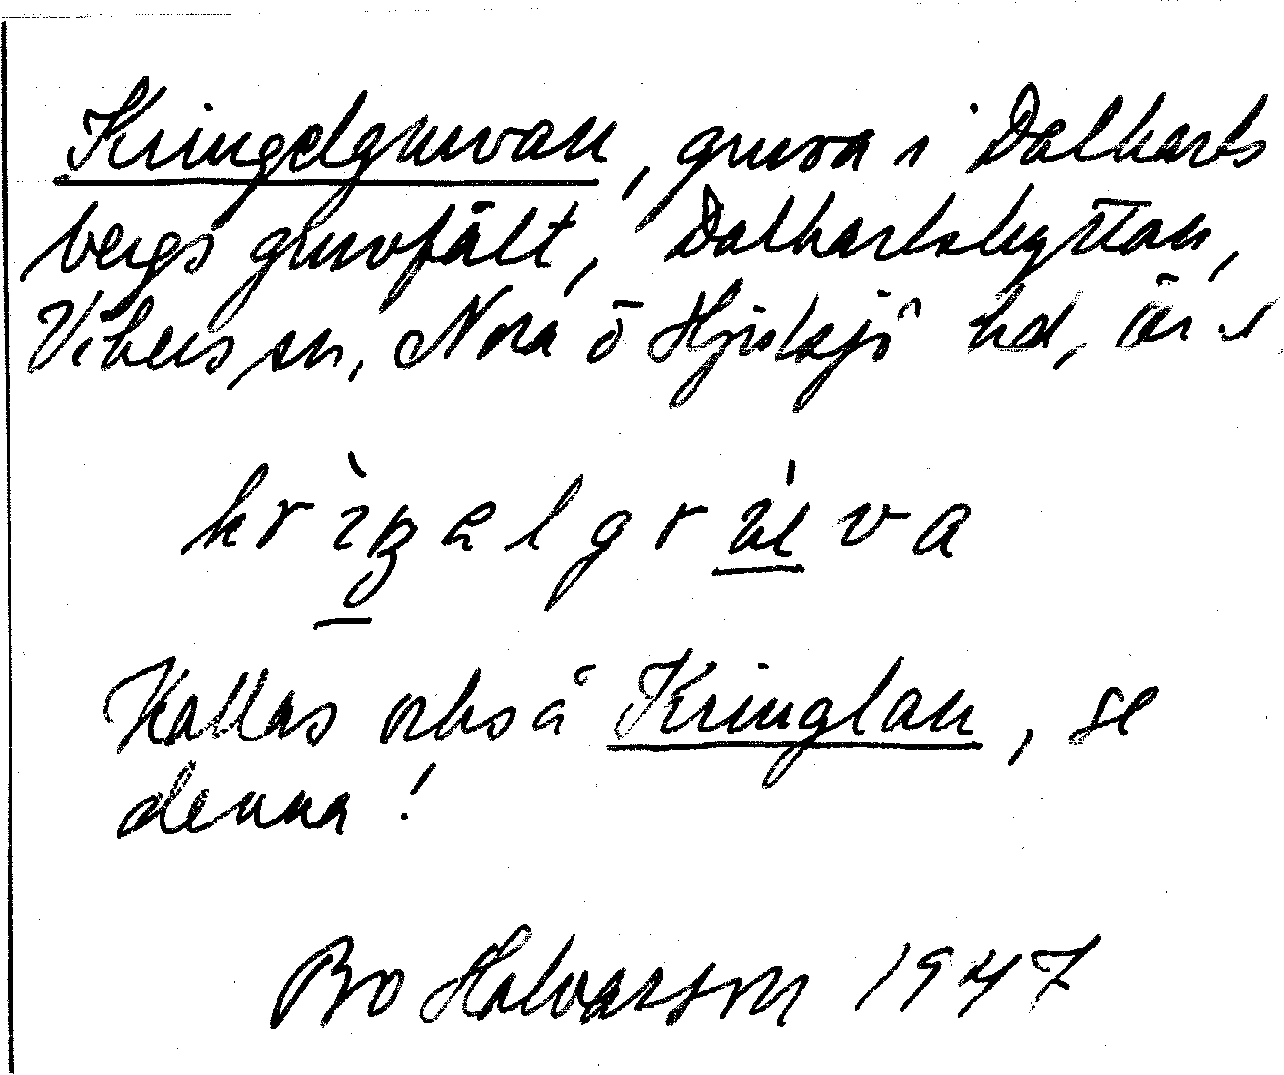 Kringelgruvan, gruva i Dalkarls
bergs gruvfält, Dalkarlshyttan,
Vikers sn, Nora o Hjulsjö hd, Ör. l
krìŋelgrúva
Kallas också Kringlan, se
denna!
Bo Halvarson 1947